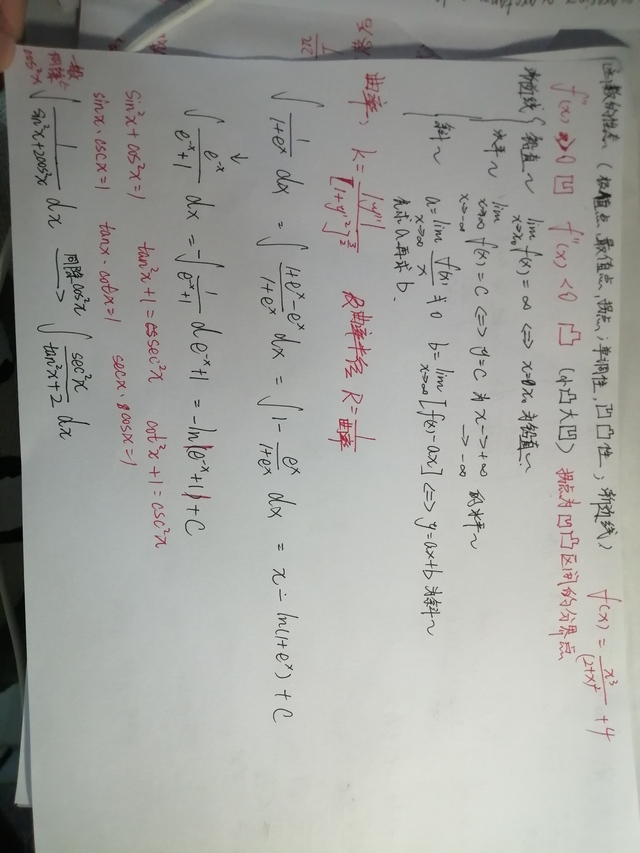 函数的性态 (极值点,最值点,拐点;单调性,凹凸性;渐近线) f(x) = x³/(2+x)² + 4
f''(x) > 0 凹 f''(x) < 0 凸 (小凸大凹) 拐点为凹凸区间的分界点
渐近线 { 铅直~ lim x→x₀ f(x) = ∞ ⇔ x=x₀ 为铅直~
水平~ lim x→+∞ x→-∞ f(x) = C ⇔ y=C 为 x→+∞ →-∞ 的水平~
斜~ a = lim x→∞ f(x)/x ≠ 0 b = lim x→∞ [f(x)-ax] ⇔ y=ax+b 为斜~
先求a再求b.
曲率, k = |y''|/[1+y'²]^(3/2) 曲率半径 R = 1/曲率
∫ 1/(1+eˣ) dx = ∫ (1+eˣ-eˣ)/(1+eˣ) dx = ∫ 1 - eˣ/(1+eˣ) dx = x - ln(1+eˣ) + C
↓
∫ e⁻ˣ/(e⁻ˣ+1) dx = -∫ 1/(e⁻ˣ+1) d e⁻ˣ+1 = -ln(e⁻ˣ+1) + C
sin²x + cos²x = 1 tan²x + 1 = sec²x cot²x + 1 = csc²x
sinx · cscx = 1 tanx · cotx = 1 secx · cosx = 1
一般同除以cos²x
∫ 1/(sin²x+2cos²x) dx 同除cos²x → ∫ sec²x/(tan²x+2) dx